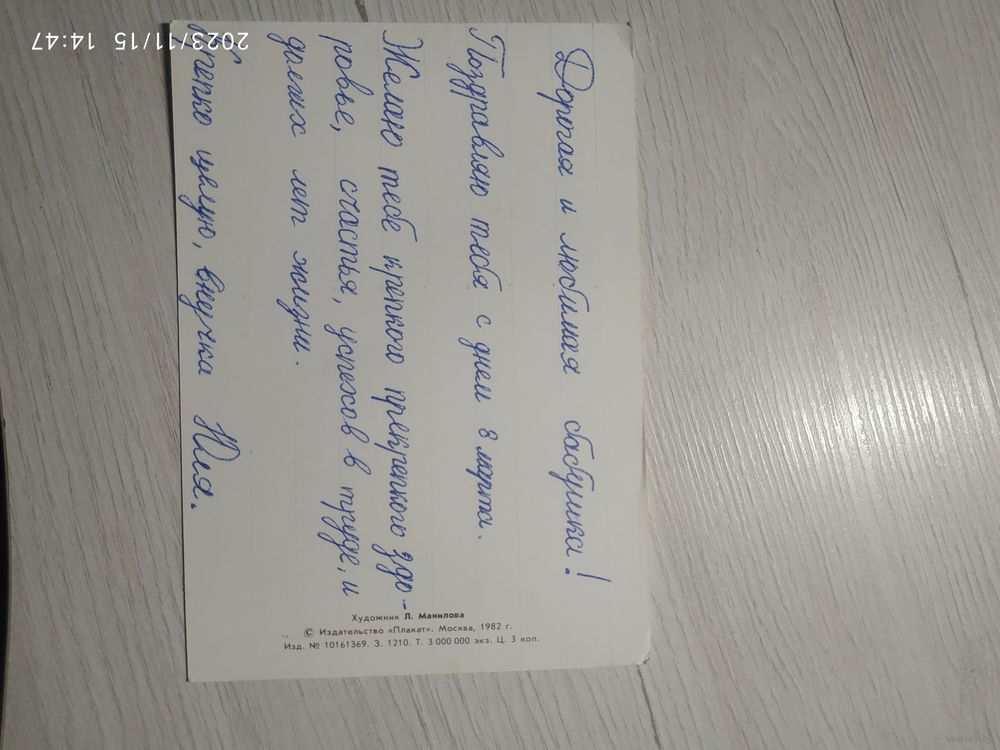 Дорогая и любимая бабушка!
Поздравляю тебя с днем 8 марта.
Желаю тебе крепкого прекрепкого здо-
ровье, счастья, успехов в труде, и
долгих лет жизни.
Крепко целую, внучка Юля.
Художник Л. Манилова
© Издательство «Плакат». Москва, 1982 г.
Изд. № 10161369. З. 1210. Т. 3 000 000 экз. Ц. 3 коп.
2023/11/15 14:47